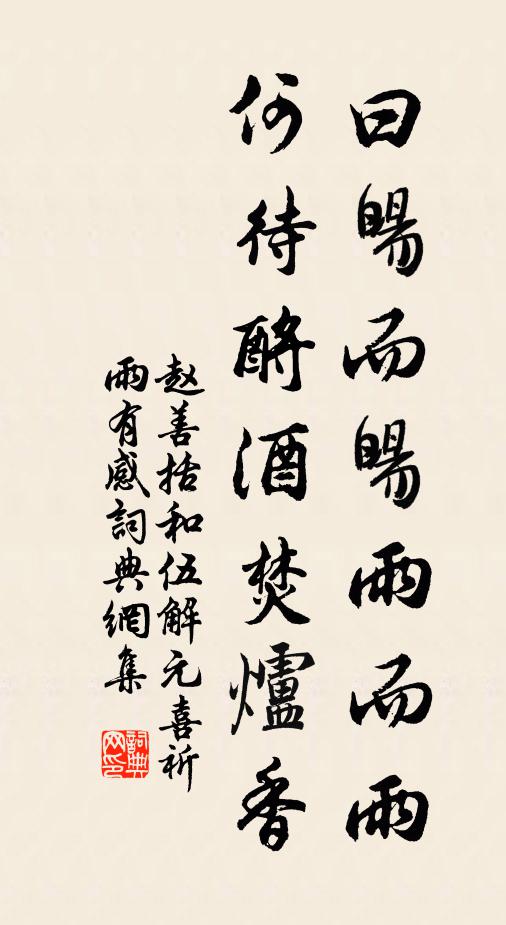 曰暘而暘雨而雨
何待酹酒焚爐香
赵善括和伍解元喜祈
雨有感詞典網集
詞典
网印